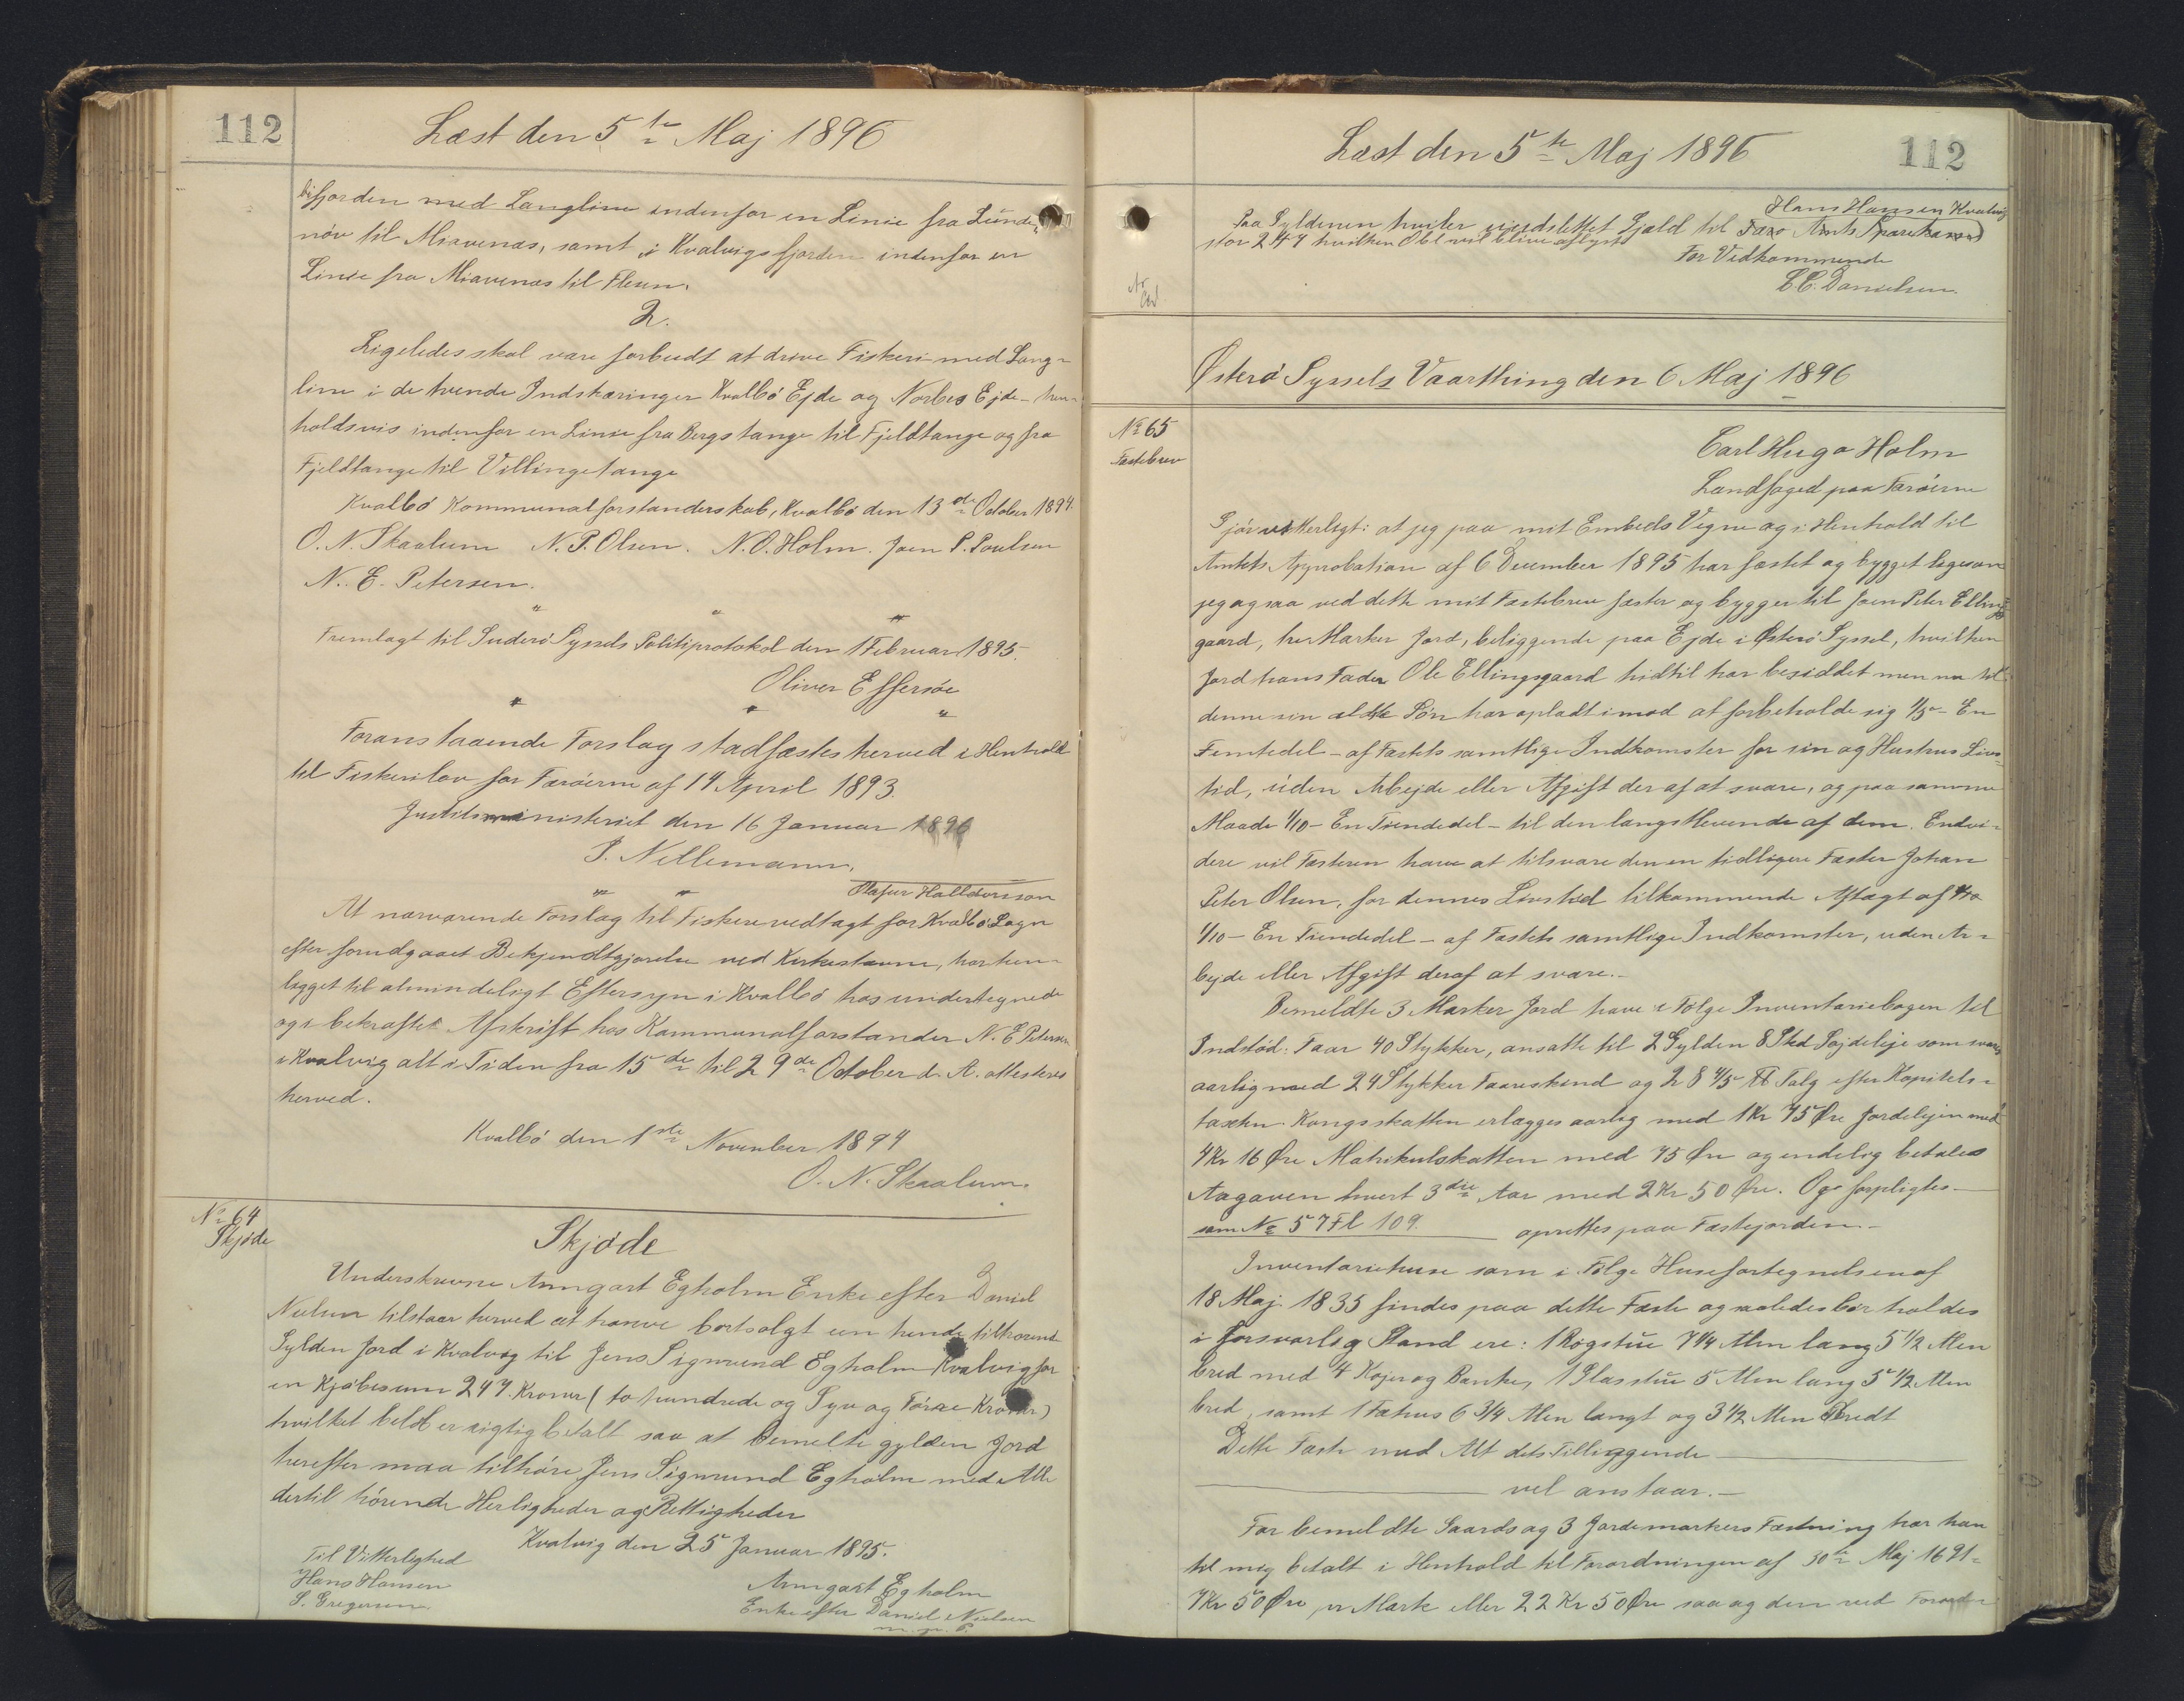 112
Læst den 5te Maj 1896
bifjorden med Langline indenfor en Linie fra Lunde
növ til Miavenæs, samt i Kvalvigsfjorden indenfor en
Linie fra Miavenæs til Flesen.
2.
Ligeledes skal være forbudt at drive Fiskeri med Lang-
line i de tvende Indskæringer Kvalbö Ejde og Norbes Ejde - hen-
holdsvis indenfor en Linie fra Bergstange til Fjeldtange og fra
Fjeldtange til Villingetange
Kvalbö Kommunalforstanderskab, Kvalbö den 13de October 1894.
O. N. Skaalum N. P. Olsen. N. O. Holm. Joen P. Poulsen
N. E. Petersen.
" " "
Fremlagt til Suderö Syssels Politiprotokol den 1 Februar 1895.
Oliver Effersöe
" " "
Foranstaaende Forslag stadfæstes herved i Henhold
til Fiskerilov for Færöerne af 14 April 1893.
Justitsministeriet den 16 Januar 1896
J. Nellemann.
" " Olafur Halldorsson
At nærværende Forslag til Fiskerivedtagt for Kvalbö Sogn
efter forudgaaet Bekjendtgjörelse ved Kirkestævne, har hen-
ligget til almindeligt Eftersyn i Kvalbö hos undertegnede
og i bekræftet Afskrift hos Kommunalforstander N. E. Petersen
i Kvalvig alt i Tiden fra 15de til 29de October d. A. attesteres
herved.
Kvalbö den 1ste November 1894
O. N. Skaalum.
No 64
Skjöde
Skjöde
Underskrevne Anngart Egholm Enke efter Daniel
Nielsen tilstaar herved at have bortsolgt en hende tilhörende
Gylden Jord i Kvalvig til Jens Sigmund Egholm Kvalvig for
en Kjöbesum 247 Kroner (to hundrede og Syv og Förre Kroner)
hvilket belöb er rigtig betalt saa at bemelte gylden Jord
herefter maa tilhöre Jens Sigmund Egholm med Alle
dertil hörende Herligheder og Rettigheder
Kvalvig den 25 Januar 1895.
Til Vitterlighed
Hans Hansen
S. Gregersen.
Anngart Egholm
Enke efter Daniel Nielsen
m. p. P.
Læst den 5te Maj 1896
112
Hans Hansen Kvalvig
Paa Gyldenen hviler uudslettet Gjæld til Færö Amts Sparekasse
stor 247 hvilken Obl vil blive aflyst
For Vedkommende
C. C. Danielsen.
Österö Syssels Vaarthing den 6 Maj 1896
No 65
Fæstebrev
Carl Hugo Holm
Landfoged paa Færöerne
Gjör vitterligt: at jeg paa mit Embeds Vegne og i Henhold til
Amtets Approbation af 6 December 1895 har fæstet og bygget ligesom
jeg ogsaa ved dette mit Fæstebrev fæster og bygger til Joen Peter Ellings
gaard, tre Marker Jord, beliggende paa Ejde i Österö Syssel, hvilken
Jord hans Fader Ole Ellingsgaard hidtil har besiddet men nu til
denne sin ældste Sön har opladt imod at forbeholde sig 1/5 - En
Femtedel - af Fæstets samtlige Indkomster for sin og Hustrus Livs-
tid, uden Arbejde eller Afgift deraf at svare, og paa samme
Maade 1/10 - En Tiendedel - til den længstlevende af dem. Endvi-
dere vil Fæsteren have at tilsvare den en tidligere Fæster Johan
Peter Olsen, for dennes Livstid tilkommende Aftægt af
1/10 - En Tiendedel - af Fæstets samtlige Indkomster, uden Ar-
bejde eller Afgift deraf at svare.-
Bemeldte 3 Marker Jord have i Fölge Inventariebogen til
Indstöd: Faar 40 Stykker, ansatte til 2 Gylden 8 Skd Söjdeleje som svares
aarlig med 24 Stykker Faareskind og 28 4/5 ℔ Talg efter Kapitels-
taxten. Kongsskatten erlægges aarlig med 1 Kr 75 Öre Jordelejen med
4 Kr 16 Öre Matrikulskatten med 75 Öre og endelig betales
Aagaven hvert 3die Aar med 2 Kr 50 Öre. Og forpligtes —
som No 57 Fl 109. — oprettes paa Fæstejorden.-
Inventariehuse som i Fölge Husefortegnelsen af
18 Maj 1835 findes paa dette Fæste og saaledes bör holdes
i forsvarlig Stand ere: 1 Rögstue 7 1/4 Alen lang 5 1/2 Alen
bred med 4 Köjer og Bænke, 1 Glasstue 5 Alen lang 5 1/2 Alen
bred, samt 1 Fæhus 6 3/4 Alen langt og 3 1/2 Alen bredt
Dette Fæste med Alt dets Tilliggende —
— vel anstaar.-
For bemeldte Gaards og 3 Jordemarkers Fæstning har han
til mig betalt i Henhold til Forordningen af 30te Maj 1691 -
7 Kr 50 Öre pr Mark eller 22 Kr 50 Öre saa og den ved Forordn